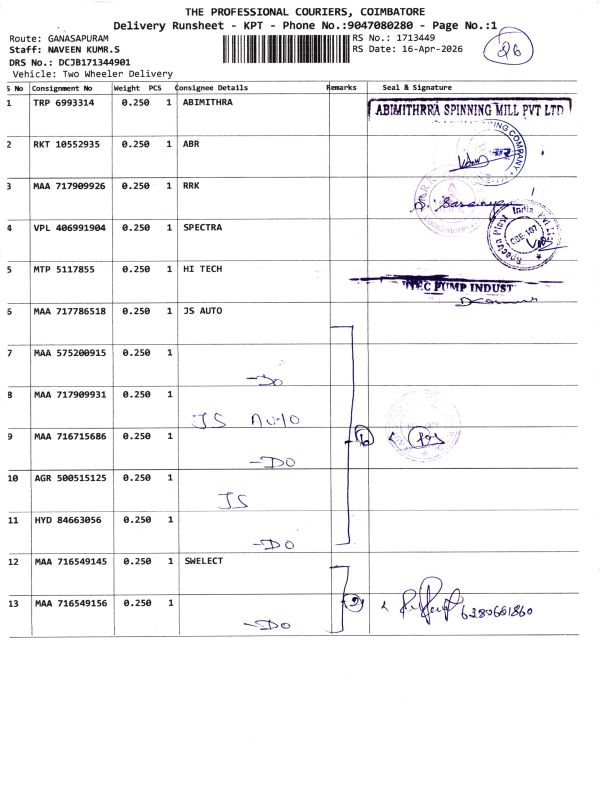 THE PROFESSIONAL COURIERS, COIMBATORE
Delivery Runsheet - KPT - Phone No.:9047080280 - Page No.:1
Route: GANASAPURAM
RS No.: 1713449
Staff: NAVEEN KUMR.S
RS Date: 16-Apr-2026
26
DRS No.: DCJB171344901
Vehicle: Two Wheeler Delivery
S No Consignment No Weight PCS Consignee Details Remarks Seal & Signature
1 TRP 6993314 0.250 1 ABIMITHRA
ABIMITHRRA SPINNING MILL PVT LTD
2 RKT 10552935 0.250 1 ABR
3 MAA 717909926 0.250 1 RRK
4 VPL 406991904 0.250 1 SPECTRA
Spectra Plast India Pvt Ltd
5 MTP 5117855 0.250 1 HI TECH
PUMP INDUST
6 MAA 717786518 0.250 1 JS AUTO
7 MAA 575200915 0.250 1
-DO
8 MAA 717909931 0.250 1
JS Auto
9 MAA 716715686 0.250 1
-DO
10 AGR 500515125 0.250 1
JS
11 HYD 84663056 0.250 1
-DO
12 MAA 716549145 0.250 1 SWELECT
13 MAA 716549156 0.250 1
-DO
6380661860